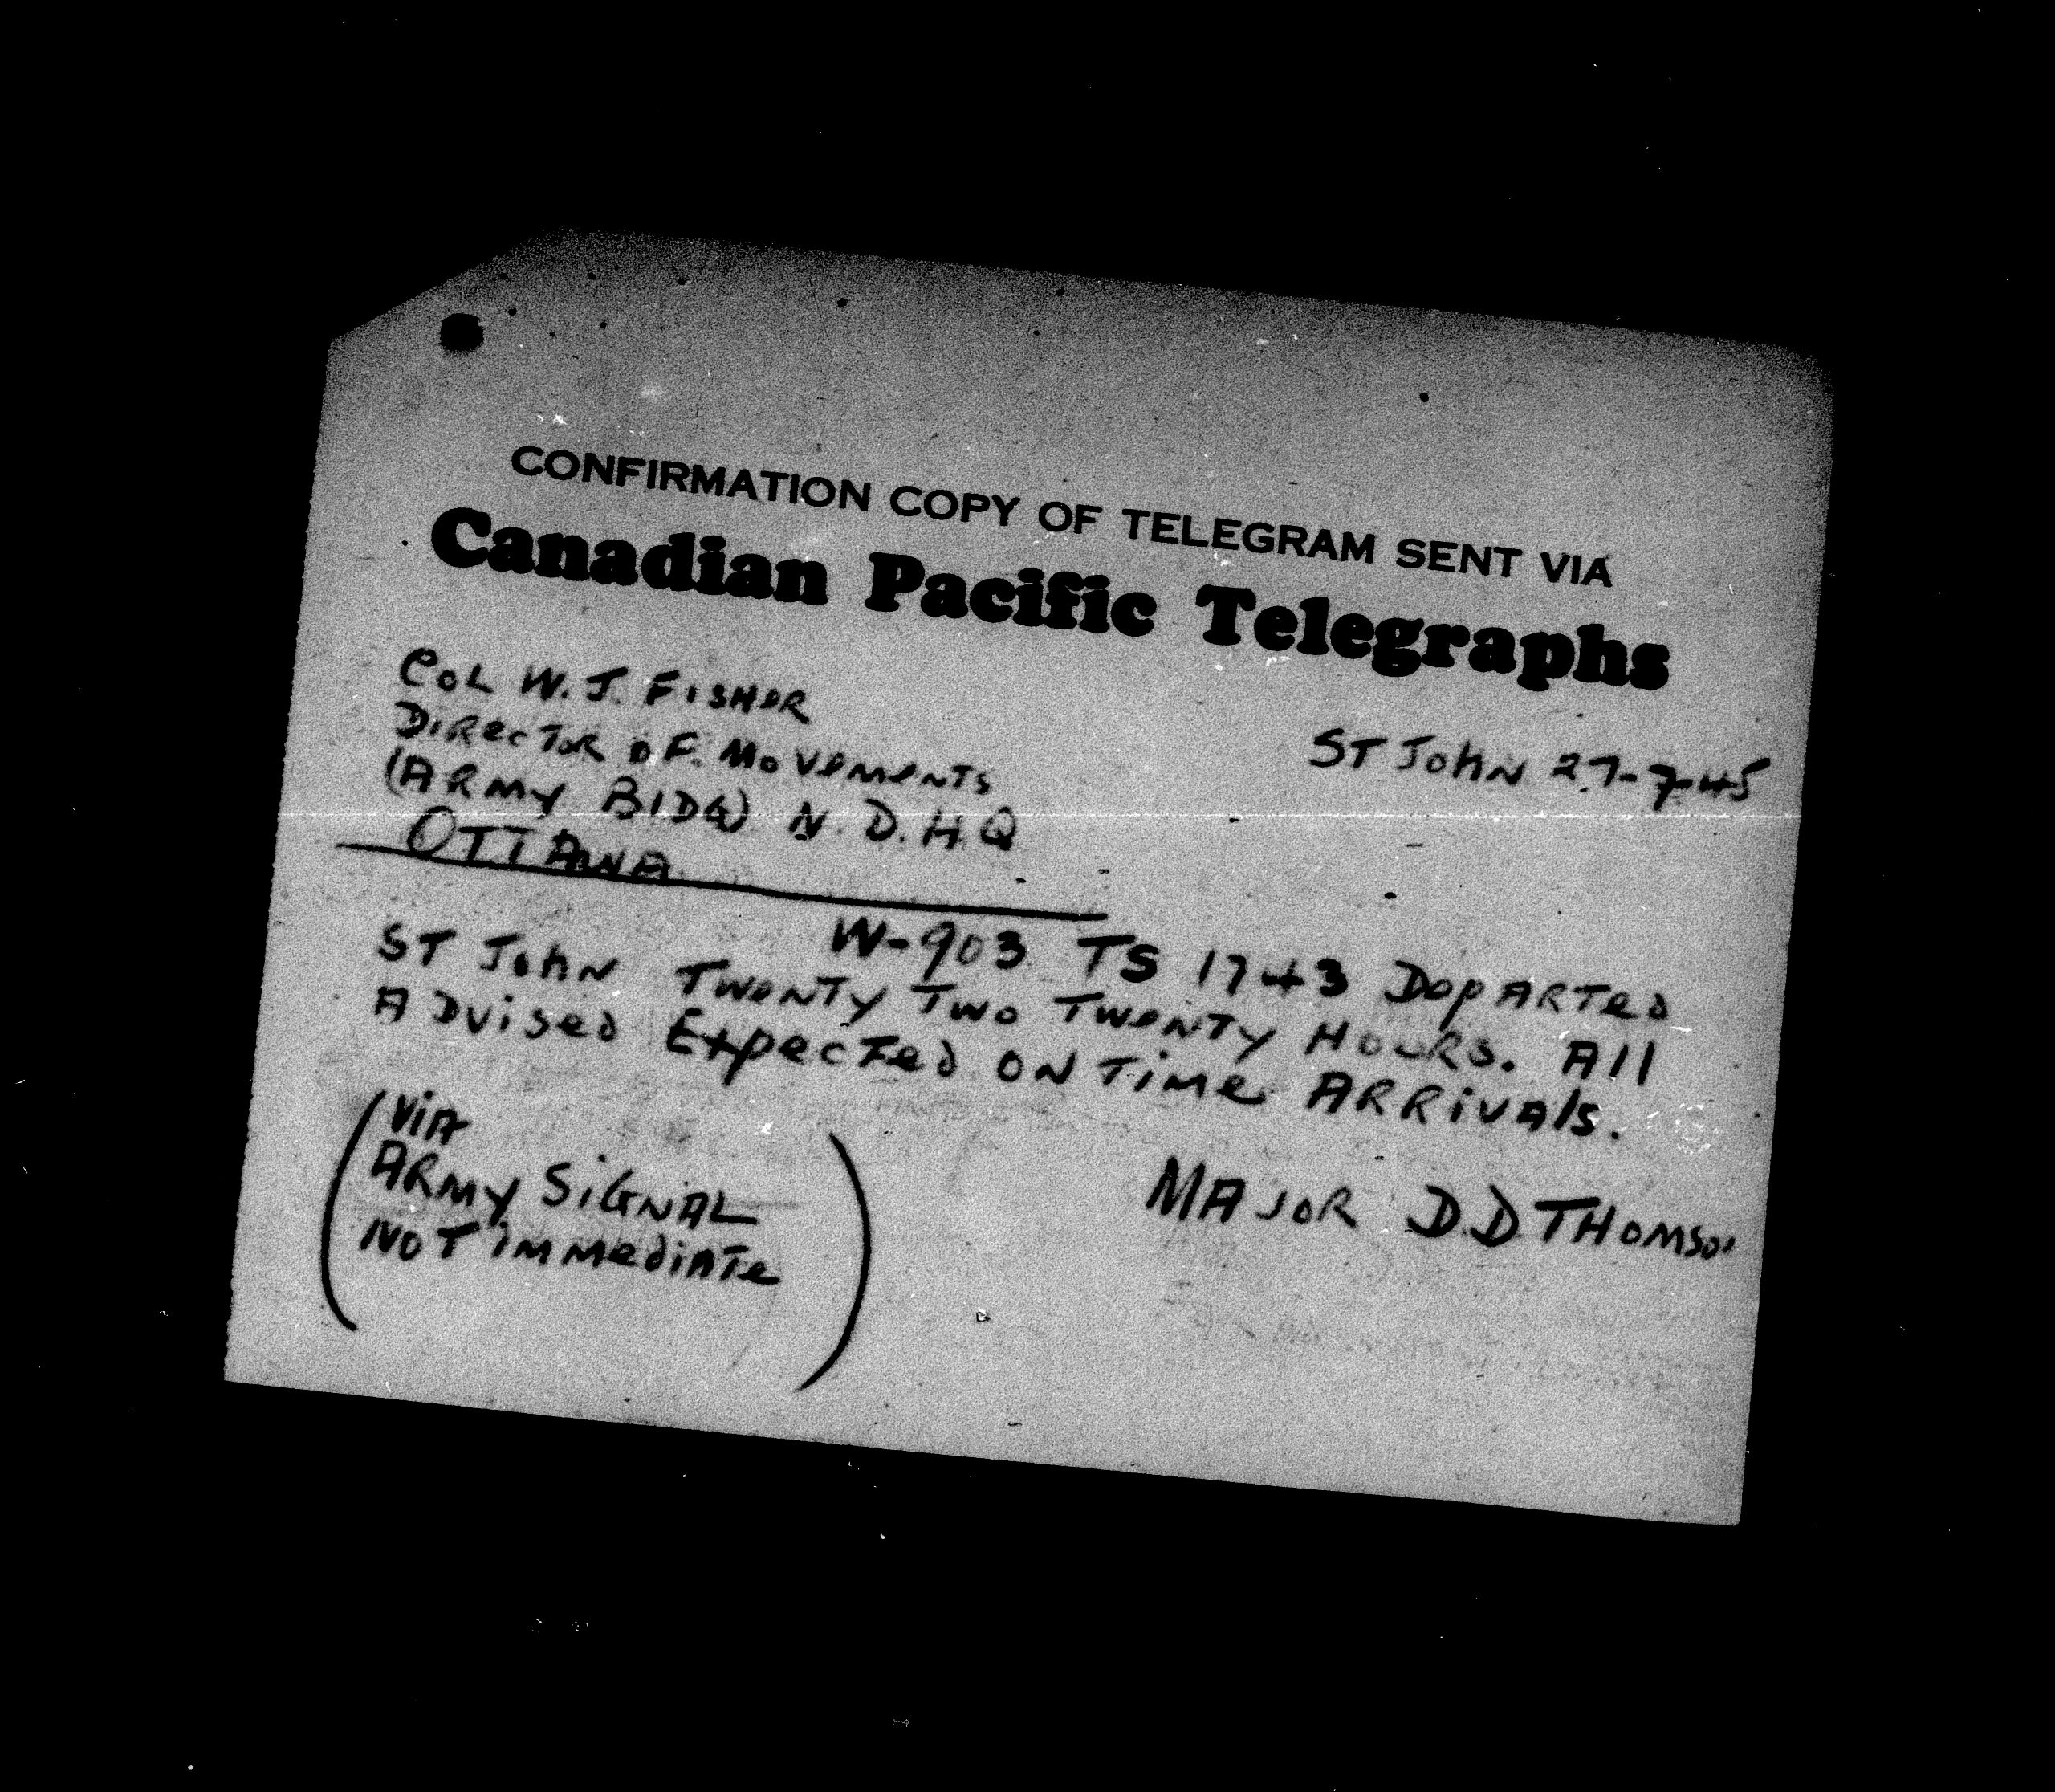 CONFIRMATION COPY OF TELEGRAM SENT VIA
Canadian Pacific Telegraphs
COL W. J. FISHER
DIRECTOR OF. MOVEMENTS
ST JOHN 27-7-45
(ARMY BLDG) N. D. H. Q
OTTAWA
W-903 TS 1743 DEPARTED
ST JOHN TWENTY TWO TWENTY HOURS. All
ADVISED EXPECTED ON TIME ARRIVALS.
(VIA
ARMY SIGNAL
NOT IMMEDIATE)
MAJOR D.D THOMSON